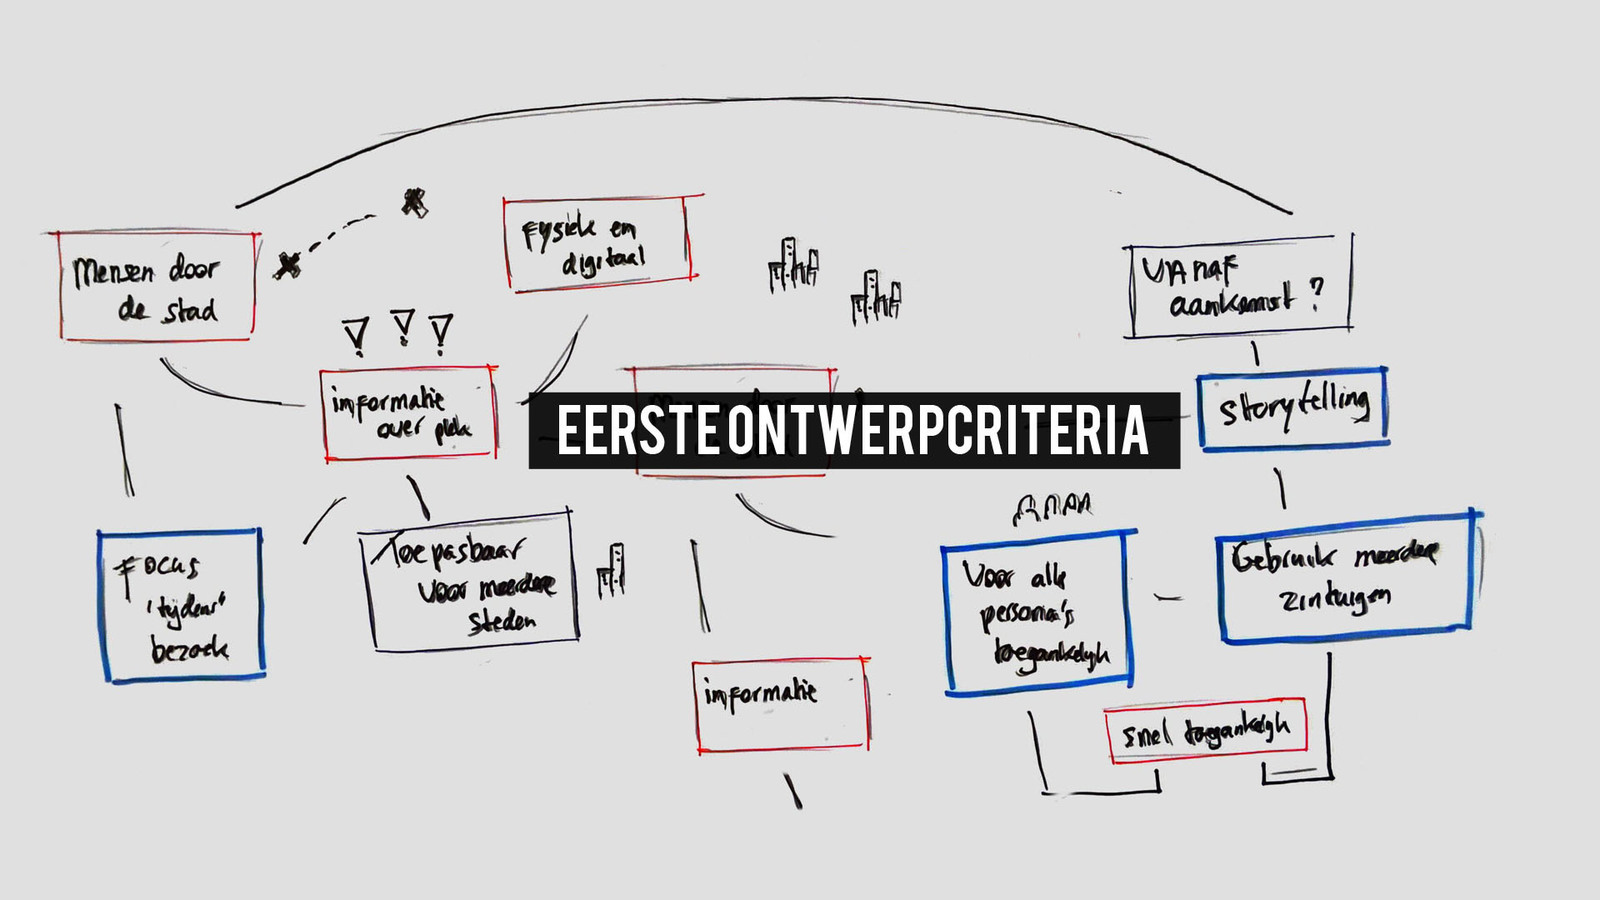 Mensen door
de stad
Fysiek en
digitaal
VANAF
aankomst ?
informatie
over plek
Mensen door
de stad
EERSTE ONTWERPCRITERIA
storytelling
Focus
'tijdens'
bezoek
Toepasbaar
voor meerdere
steden
Voor alle
persona's
toegankelijk
Gebruik meerdere
zintuigen
informatie
snel toegankelijk